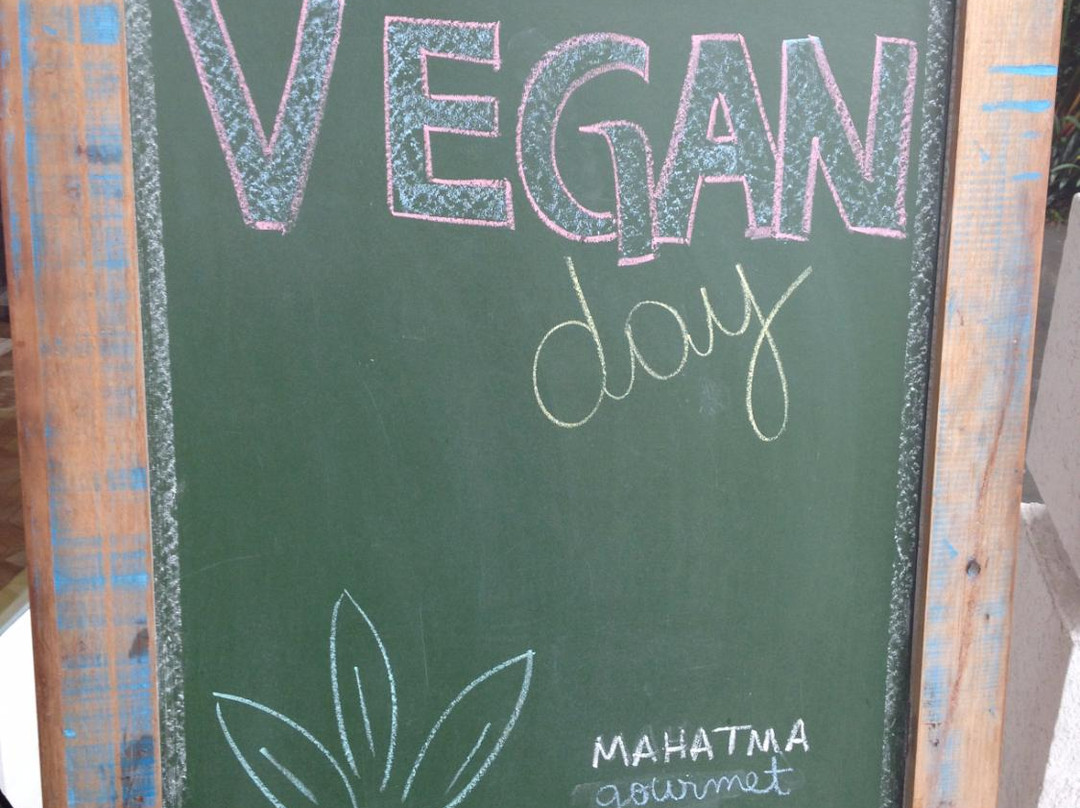 VEGAN
day
MAHATMA
gourmet